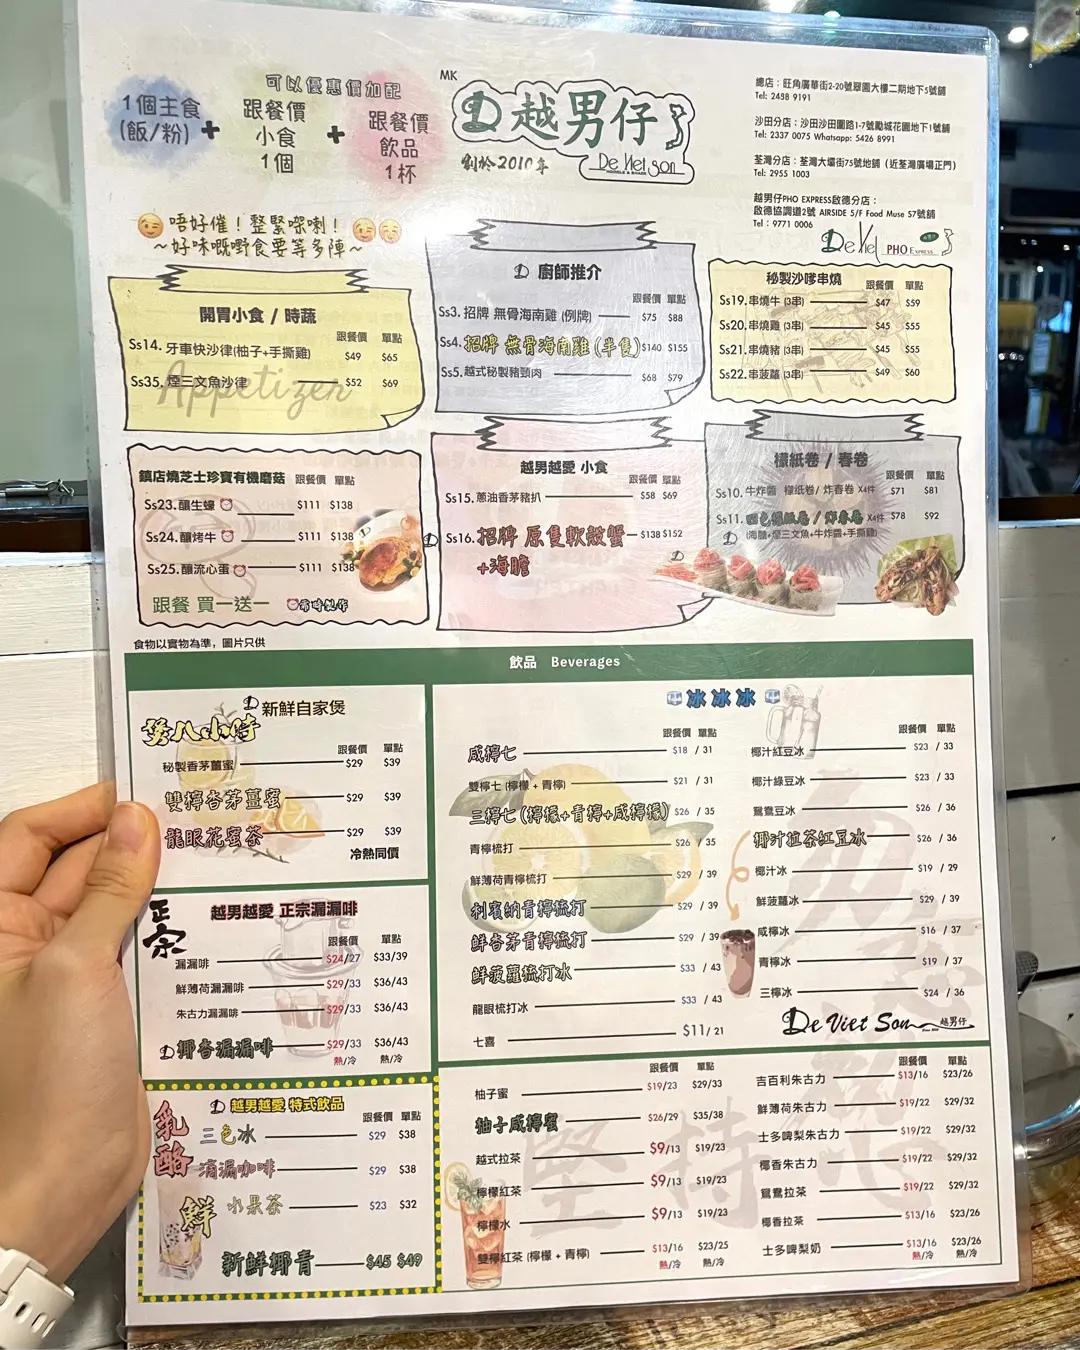 可以優惠價加配
1個主食
(飯/粉)
+
跟餐價
小食
1個
+
跟餐價
飲品
1杯
MK
越男仔
創於2010年
De Viet Son
NOODLES & SNACK
總店：旺角廣華街2-20號翠園大樓二期地下5號舖
Tel: 2458 9191
沙田分店：沙田沙田圍路1-7號勵城花園地下1號舖
Tel: 2337 0075 Whatsapp: 5426 8991
荃灣分店：荃灣大壩街75號地舖（近荃灣廣場正門）
Tel: 2955 1003
越男仔PHO EXPRESS啟德分店：
啟德協調道2號 AIRSIDE 5/F Food Muse 57號舖
Tel：9771 0006
De Viet PHO EXPRESS
唔好催！整緊㗎喇！
~好味嘅嘢食要等多陣~
開胃小食 / 時蔬
跟餐價 單點
Ss14. 牙車快沙律(柚子+手撕雞) $49 $65
Ss35. 煙三文魚沙律 $52 $69
Appetizer
廚師推介
跟餐價 單點
Ss3. 招牌 無骨海南雞 (例牌) $75 $88
Ss4. 招牌 無骨海南雞 (半隻) $140 $155
Ss5. 越式秘製豬頸肉 $68 $79
秘製沙嗲串燒
跟餐價 單點
Ss19. 串燒牛 (3串) $47 $59
Ss20. 串燒雞 (3串) $45 $55
Ss21. 串燒豬 (3串) $45 $55
Ss22. 串菠蘿 (3串) $49 $60
鎮店燒芝士珍寶有機磨菇 跟餐價 單點
Ss23. 釀生蠔 $111 $138
Ss24. 釀烤牛 $111 $138
Ss25. 釀流心蛋 $111 $138
跟餐 買一送一
需時製作
越男越愛 小食
跟餐價 單點
Ss15. 蔥油香茅豬扒 $58 $69
Ss16. 招牌 原隻軟殼蟹 $138 $152
+海膽
檬紙卷 / 春卷
跟餐價 單點
Ss10. 牛炸醬 檬紙卷/ 炸春卷 X4件 $71 $81
Ss11. 四色檬紙卷 / 炸春卷 X4件 $78 $92
(海膽+煙三文魚+牛炸醬+手撕雞)
食物以實物為準，圖片只供
飲品 Beverages
新鮮自家煲
煲八小時
跟餐價 單點
秘製香茅薑蜜 $29 $39
雙檸香茅薑蜜 $29 $39
龍眼花蜜茶 $29 $39
冷熱同價
正宗
越男越愛 正宗漏漏啡
跟餐價 單點
漏漏啡 $24/27 $33/39
鮮薄荷漏漏啡 $29/33 $36/43
朱古力漏漏啡 $29/33 $36/43
椰香漏漏啡 $29/33 $36/43
熱/冷 熱/冷
乳酪
鮮
越男越愛 特式飲品
跟餐價 單點
三色冰 $29 $38
滴漏咖啡 $29 $38
水果茶 $23 $32
新鮮椰青 $45 $49
冰冰冰
跟餐價 單點
咸檸七 $18 / 31
雙檸七 (檸檬 + 青檸) $21 / 31
三檸七 (檸檬+青檸+咸檸檬) $26 / 35
青檸梳打 $26 / 35
鮮薄荷青檸梳打 $29 / 39
利賓納青檸梳打 $29 / 39
鮮香茅青檸梳打 $29 / 39
鮮菠蘿梳打冰 $33 / 43
龍眼梳打冰 $33 / 43
七喜 $11/ 21
跟餐價 單點
椰汁紅豆冰 $23 / 33
椰汁綠豆冰 $23 / 33
鴛鴦豆冰 $26 / 36
椰汁拉茶紅豆冰 $26 / 36
椰汁冰 $19 / 29
鮮菠蘿冰 $29 / 39
咸檸冰 $16 / 37
青檸冰 $19 / 37
三檸冰 $24 / 36
De Viet Son 越男仔
跟餐價 單點
柚子蜜 $19/23 $29/33
柚子咸檸蜜 $26/29 $35/38
越式拉茶 $9/13 $19/23
檸檬紅茶 $9/13 $19/23
檸檬水 $9/13 $19/23
雙檸紅茶 (檸檬 + 青檸) $13/16 $23/25
熱/冷 熱/冷
跟餐價 單點
吉百利朱古力 $13/16 $23/26
鮮薄荷朱古力 $19/22 $29/32
士多啤梨朱古力 $19/22 $29/32
椰香朱古力 $19/22 $29/32
鴛鴦拉茶 $19/22 $29/32
椰香拉茶 $13/16 $23/26
士多啤梨奶 $13/16 $23/26
熱/冷 熱/冷
堅持